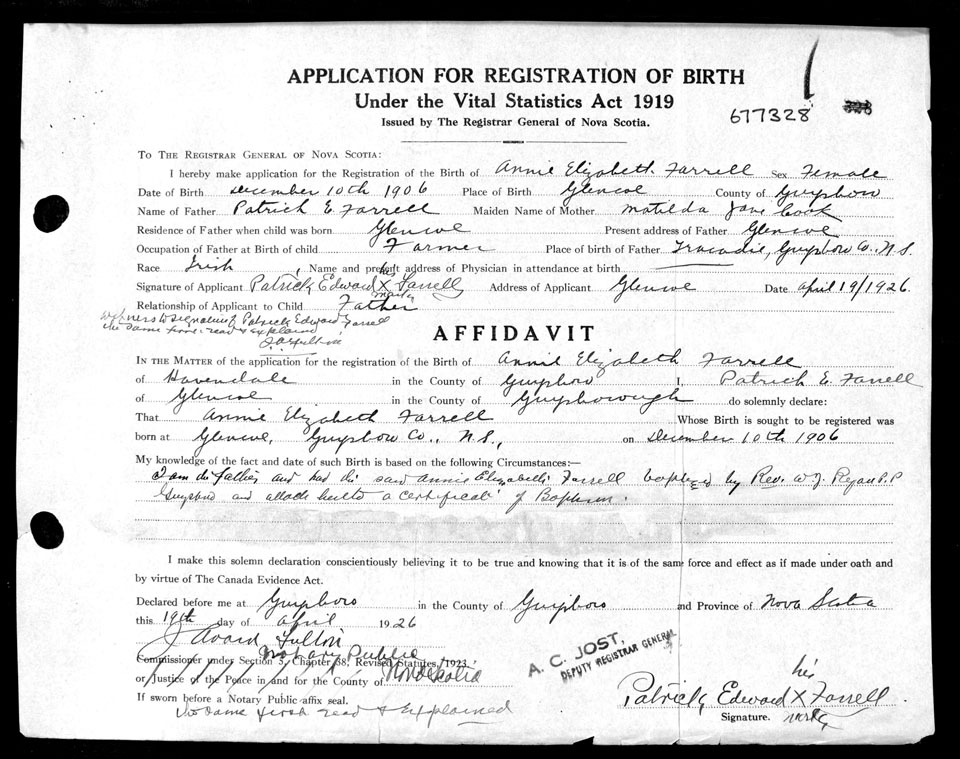 APPLICATION FOR REGISTRATION OF BIRTH
Under the Vital Statistics Act 1919
Issued by The Registrar General of Nova Scotia.
677328
TO THE REGISTRAR GENERAL OF NOVA SCOTIA:
I hereby make application for the Registration of the Birth of Annie Elizabeth Farrell Sex Female
Date of Birth December 10th 1906 Place of Birth Glencoe County of Guysboro
Name of Father Patrick E Farrell Maiden Name of Mother Matilda Jane Cook
Residence of Father when child was born Glencoe Present address of Father Glencoe
Occupation of Father at Birth of child Farmer Place of birth of Father Tracadie, Guysboro Co., N.S.
Race Irish, Name and present address of Physician in attendance at birth
Signature of Applicant Patrick Edward his X mark Farrell Address of Applicant Glencoe Date April 19/1926.
Relationship of Applicant to Child Father
Witness to signature of Patrick Edward Farrell
the same first read & explained
AFFIDAVIT
IN THE MATTER of the application for the registration of the Birth of Annie Elizabeth Farrell
of Havendale in the County of Guysboro I, Patrick E. Farrell
of Glencoe in the County of Guysborough do solemnly declare:
That Annie Elizabeth Farrell Whose Birth is sought to be registered was
born at Glencoe, Guysboro Co., N.S., on December 10th 1906
My knowledge of the fact and date of such Birth is based on the following Circumstances:—
I am the father and had the said Annie Elizabeth Farrell baptized by Rev. W. J. Regan P.P
Guysboro and attach hereto a certificate of Baptism.
I make this solemn declaration conscientiously believing it to be true and knowing that it is of the same force and effect as if made under oath and
by virtue of The Canada Evidence Act.
Declared before me at Guysboro in the County of Guysboro and Province of Nova Scotia
this 19th day of April 1926
J Avard Fulton
Notary Public
Commissioner under Section 3, Chapter 38, Revised Statutes, 1923.
or Justice of the Peace in and for the County of Nova Scotia
If sworn before a Notary Public affix seal.
the same first read & Explained
A. C. JOST,
DEPUTY REGISTRAR GENERAL
his
Patrick Edward X Farrell
Signature. mark